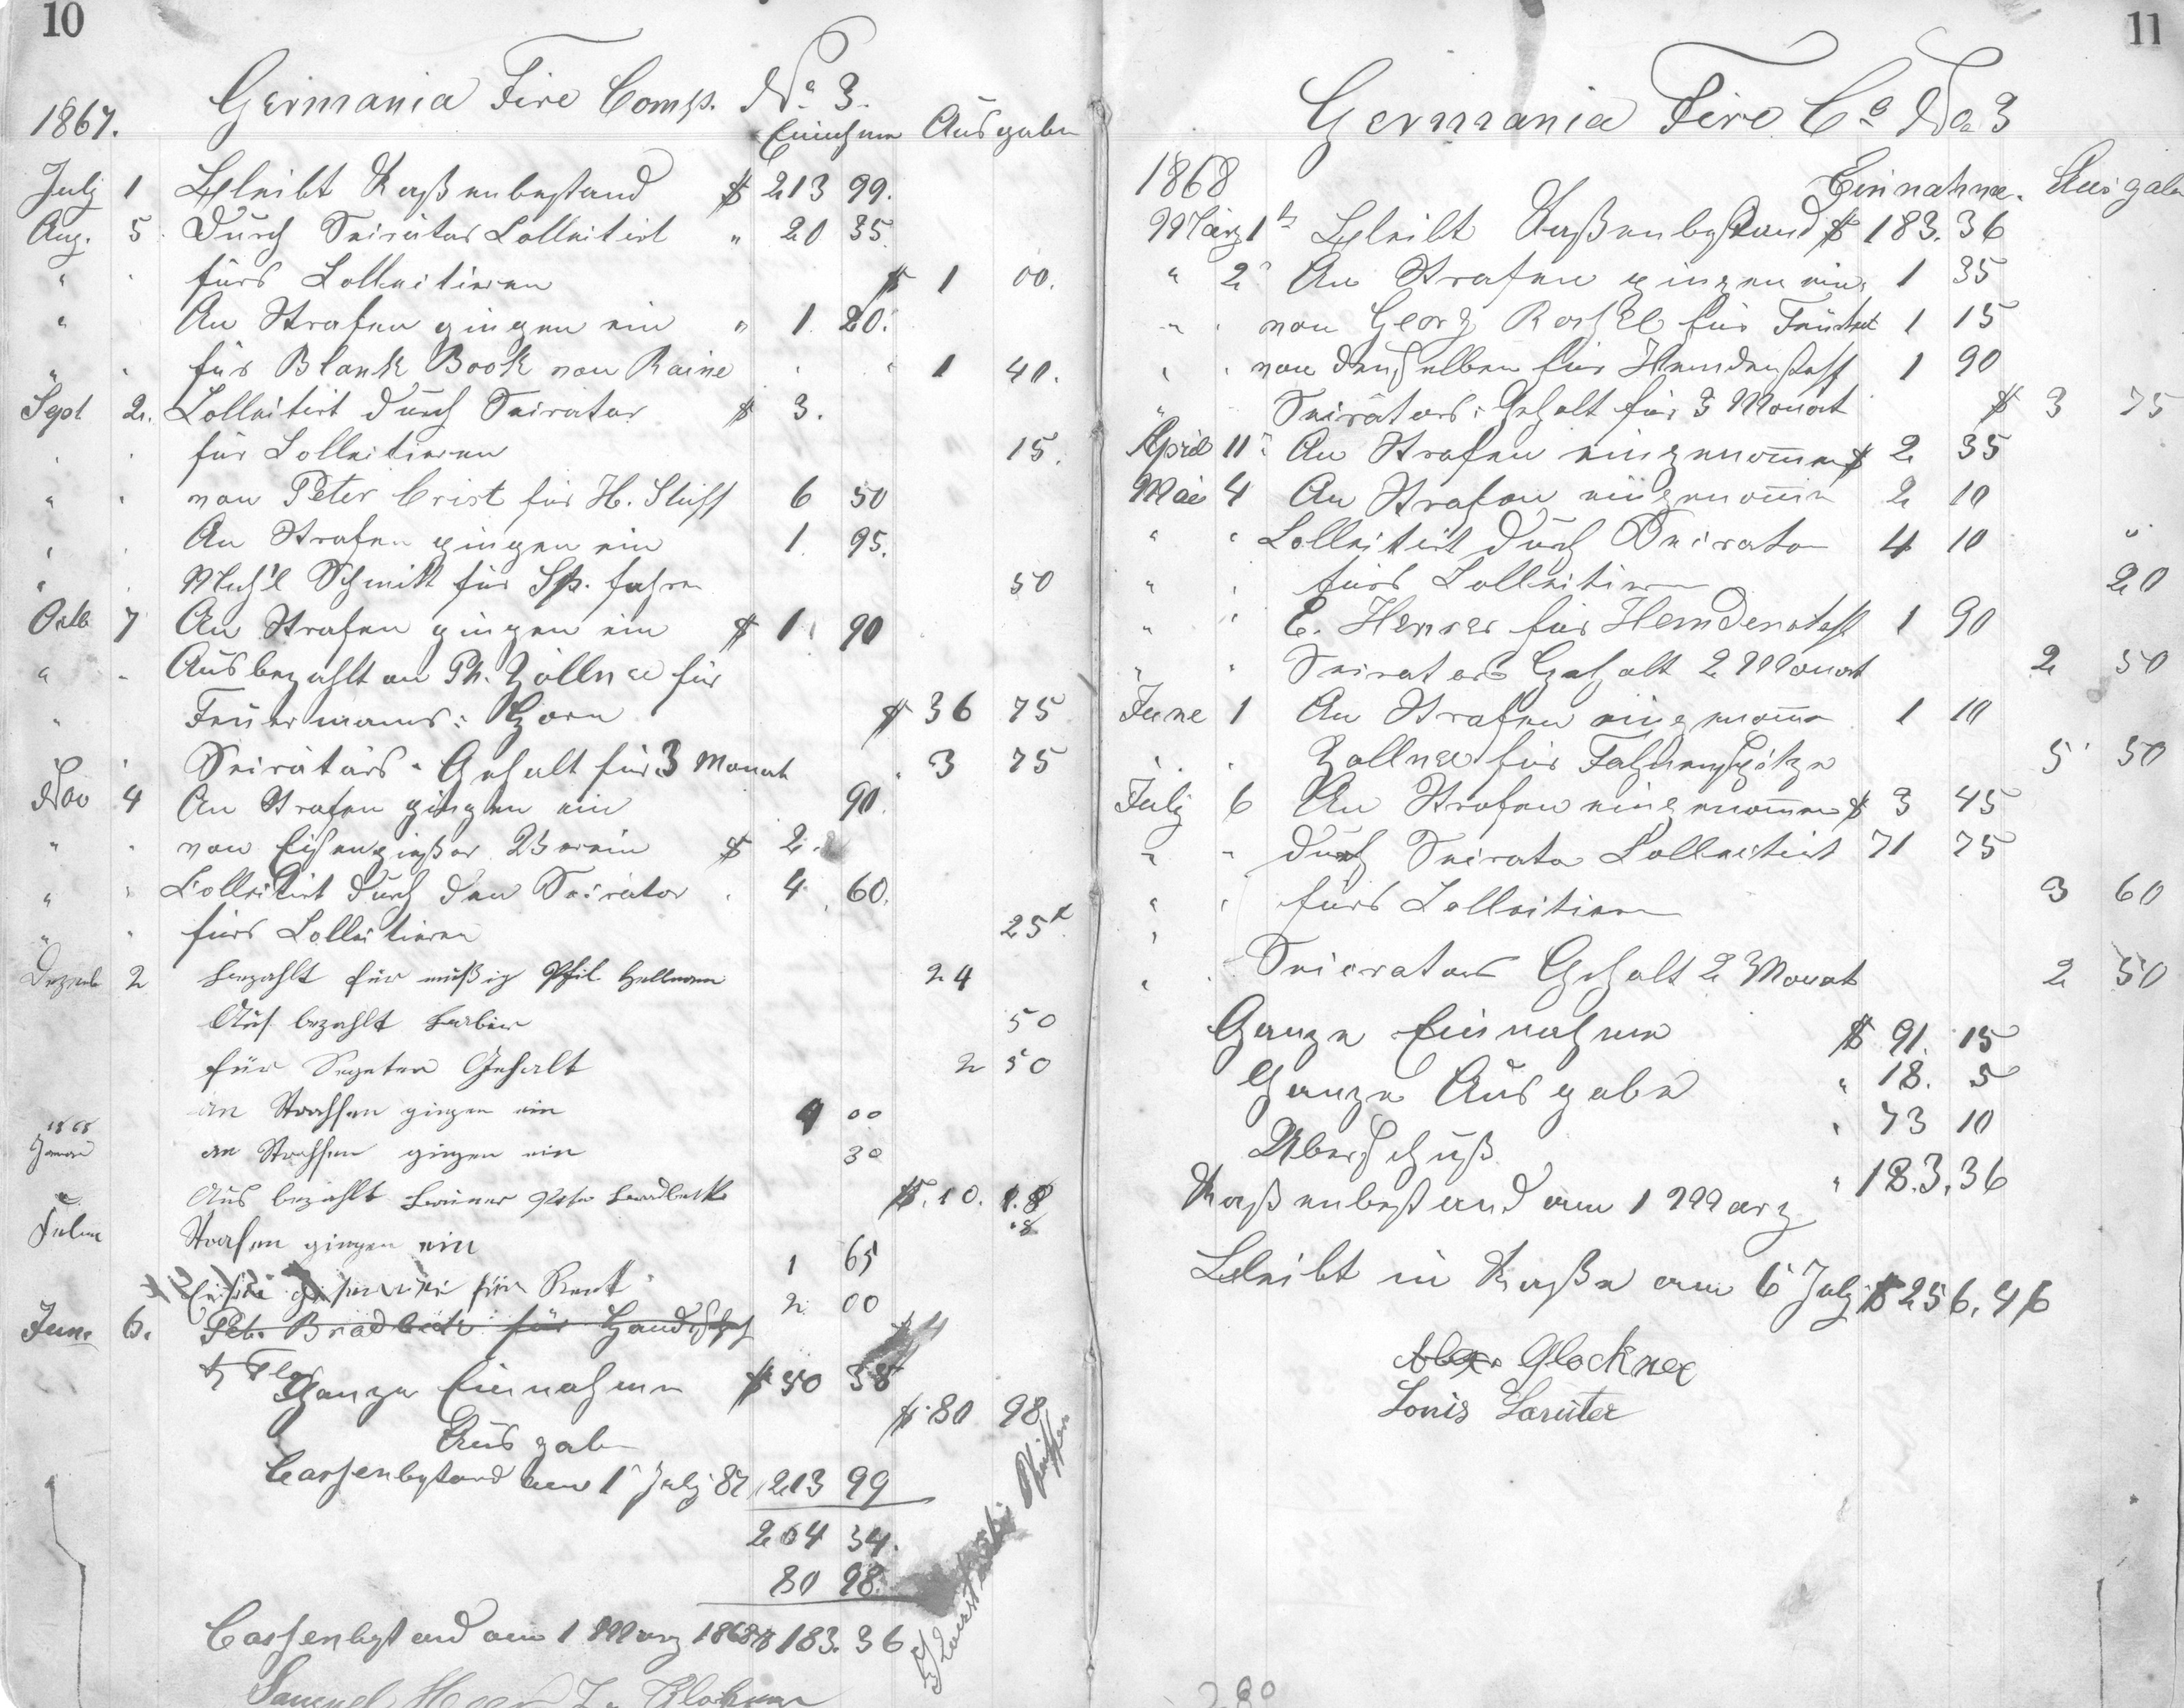 10
Germania Fire Comp. No. 3.
1867.
Einnahme Ausgaben
July 1 Bleibt Kaßenbestand $ 213 99.
Aug. 5 Durch Secretär Collectirt " 20 35
" fürs Collectieren $ 1 00.
" An Strafen gingen ein " 1. 20.
" für Blank Book von Raine 1 40.
Sept 2. Collectirt durch Secretär $ 3.
für Collectieren 15.
" von Peter Crist für H. Stuff 6 50
" An Strafen gingen ein 1. 95.
" Mich'l Schmitt für Sp. fahren 50
Octb 7 An Strafen gingen ein $ 1. 90
" Ausbezahlt an Ph. Zöllner für
" Feuermanns: Horn $ 36 75
Secretärs. Gehalt für 3 Monat 3 75
Nov 4 An Strafen gingen ein 90.
" von Eisengießer Verein $ 2.
" Collectirt durch den Secretär 4. 60.
" fürs Collectieren 25
Dezemb 2 bezahlt für Phil. Hellmann 24
Aus bezahlt 50
für Gehalt 2 50
an Strafen gingen ein 4 00
1868
an Strafen gingen ein 30
Aus bezahlt $. 10. 18
Strafen gingen ein 1 65
für Rent 2 00
June 6. Pet. Bradbeck für
Ganze Einnahme $ 50 35
Ausgabe $ 80 98
Cassenbestand am 1 July 87 213 99
264 34.
80 98.
Cassenbestand am 1 März 1868 $ 183. 36
Samuel
11
Germania Fire Co No 3
1868
Einnahme. Ausgabe
März 1 Bleibt Kaßenbestand $ 183. 36
" 2 An Strafen gingen ein 1 35
" von Georg Roskel für 1 15
" von denselben für Hemdenstoff 1 90
" Secretärs: Gehalt für 3 Monat $ 3 75
April 11 An Strafen eingenommen $ 2 35
Mai 4 An Strafen eingenommen 2 10
" Collectirt durch Secretär 4 10
" fürs Collectieren 20
" C. Henser für Hemdenstoff 1 90
" Secretärs Gehalt 2 Monat 2 50
June 1 An Strafen eingenommen 1 10
Zöllner für 5 50
July 6 An Strafen eingenommen $ 3 45
" " durch Secretär Collectirt 71 75
" fürs Collectieren 3 60
" Secretärs Gehalt 2 Monat 2 50
Ganze Einnahme $ 91. 15
Ganze Ausgabe " 18. 5
Überschuß " 73 10
Kaßenbestand am 1 März " 183. 36
Bleibt in Kaße am 6 July $ 256. 46
Alex. Glockner
Louis Lauter